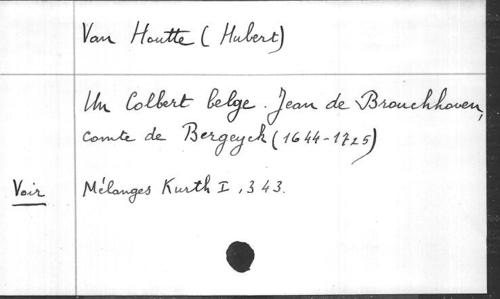 Van Houtte (Hubert)
Un Colbert belge. Jean de Brouchhoven,
comte de Bergeyck (1644-1725)
Voir Mélanges Kurth I, 343.